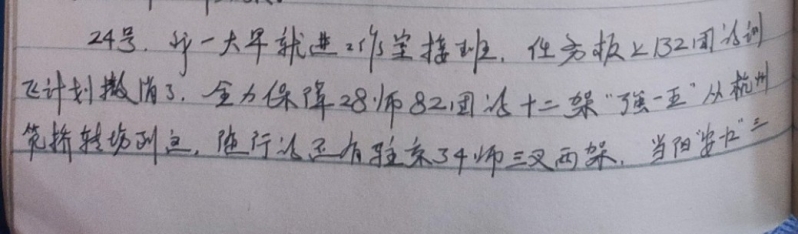 24号. 我一大早就进工作室接班, 任务板上132团的训
飞计划撤消了. 全力保障28师82团的十二架“强-五”从杭州
笕桥转场到这, 随行的还有驻京34师三叉两架. 当阳“安26”三